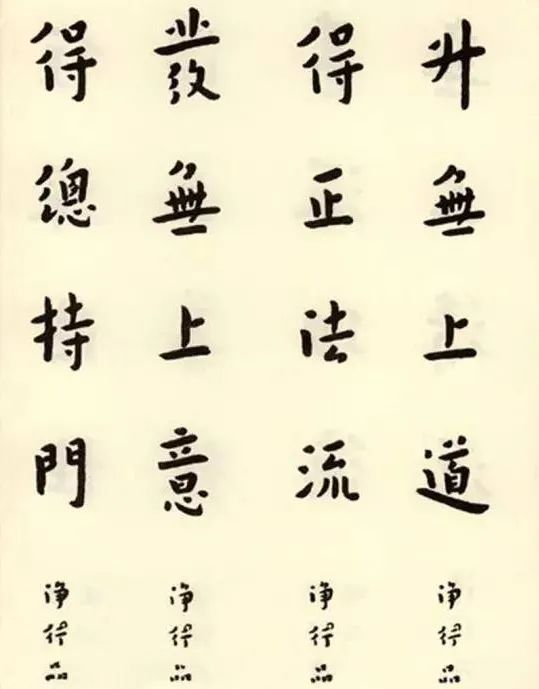 升無上道
淨行品
得正法流
淨行品
發無上意
淨行品
得總持門
淨行品